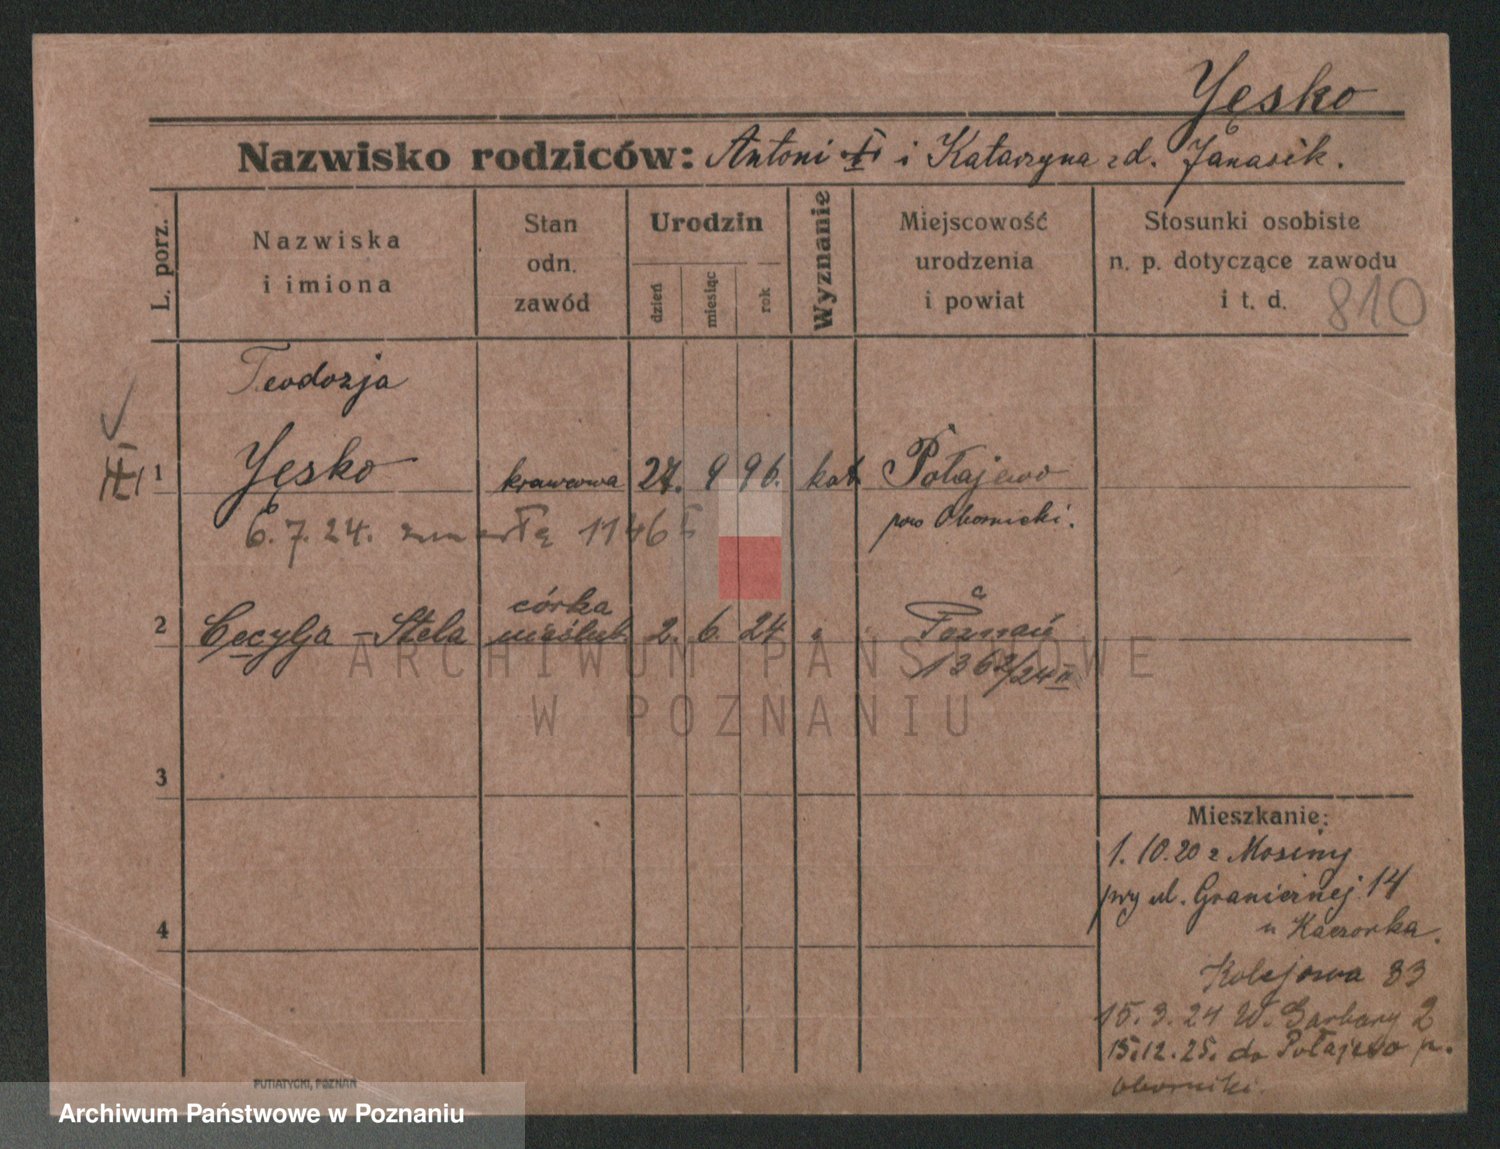 Yęsko
Nazwisko rodziców: Antoni i Katarzyna zd. Janasik.
L. porz.
Nazwiska i imiona
Stan odn. zawód
Urodzin
dzień
miesiąc
rok
Wyznanie
Miejscowość urodzenia i powiat
Stosunki osobiste n. p. dotyczące zawodu i t. d.
810
Teodozja
1 Yęsko krawcowa 27. 9 96. kat Połajewo
pow Obornicki.
6. 7. 24. zmarła 1146
córka
2 Cecylja - Stela nieślub. 2. 6. 24 " Poznań
1362/24 III
ARCHIWUM PAŃSTWOWE
W POZNANIU
3
4
Mieszkanie:
1. 10. 20 z Mosiny
przy ul. Granicznej 14
u Kaczorka.
Kolejowa 83
15. 9. 24 W. Garbary 2
15. 12. 25. do Połajewo p.
Oborniki.
PUTIATYCKI, POZNAŃ
Archiwum Państwowe w Poznaniu